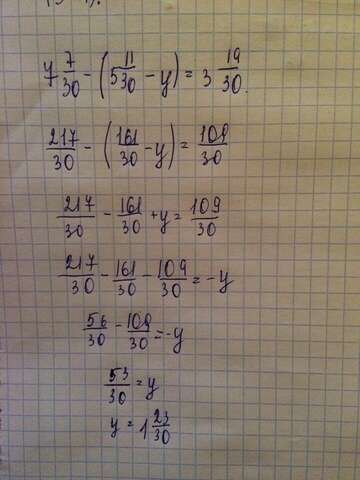 7 7/30 - (5 11/30 - y) = 3 19/30.
217/30 - (161/30 - y) = 109/30
217/30 - 161/30 + y = 109/30
217/30 - 161/30 - 109/30 = -y
56/30 - 109/30 = -y
53/30 = y
y = 1 23/30